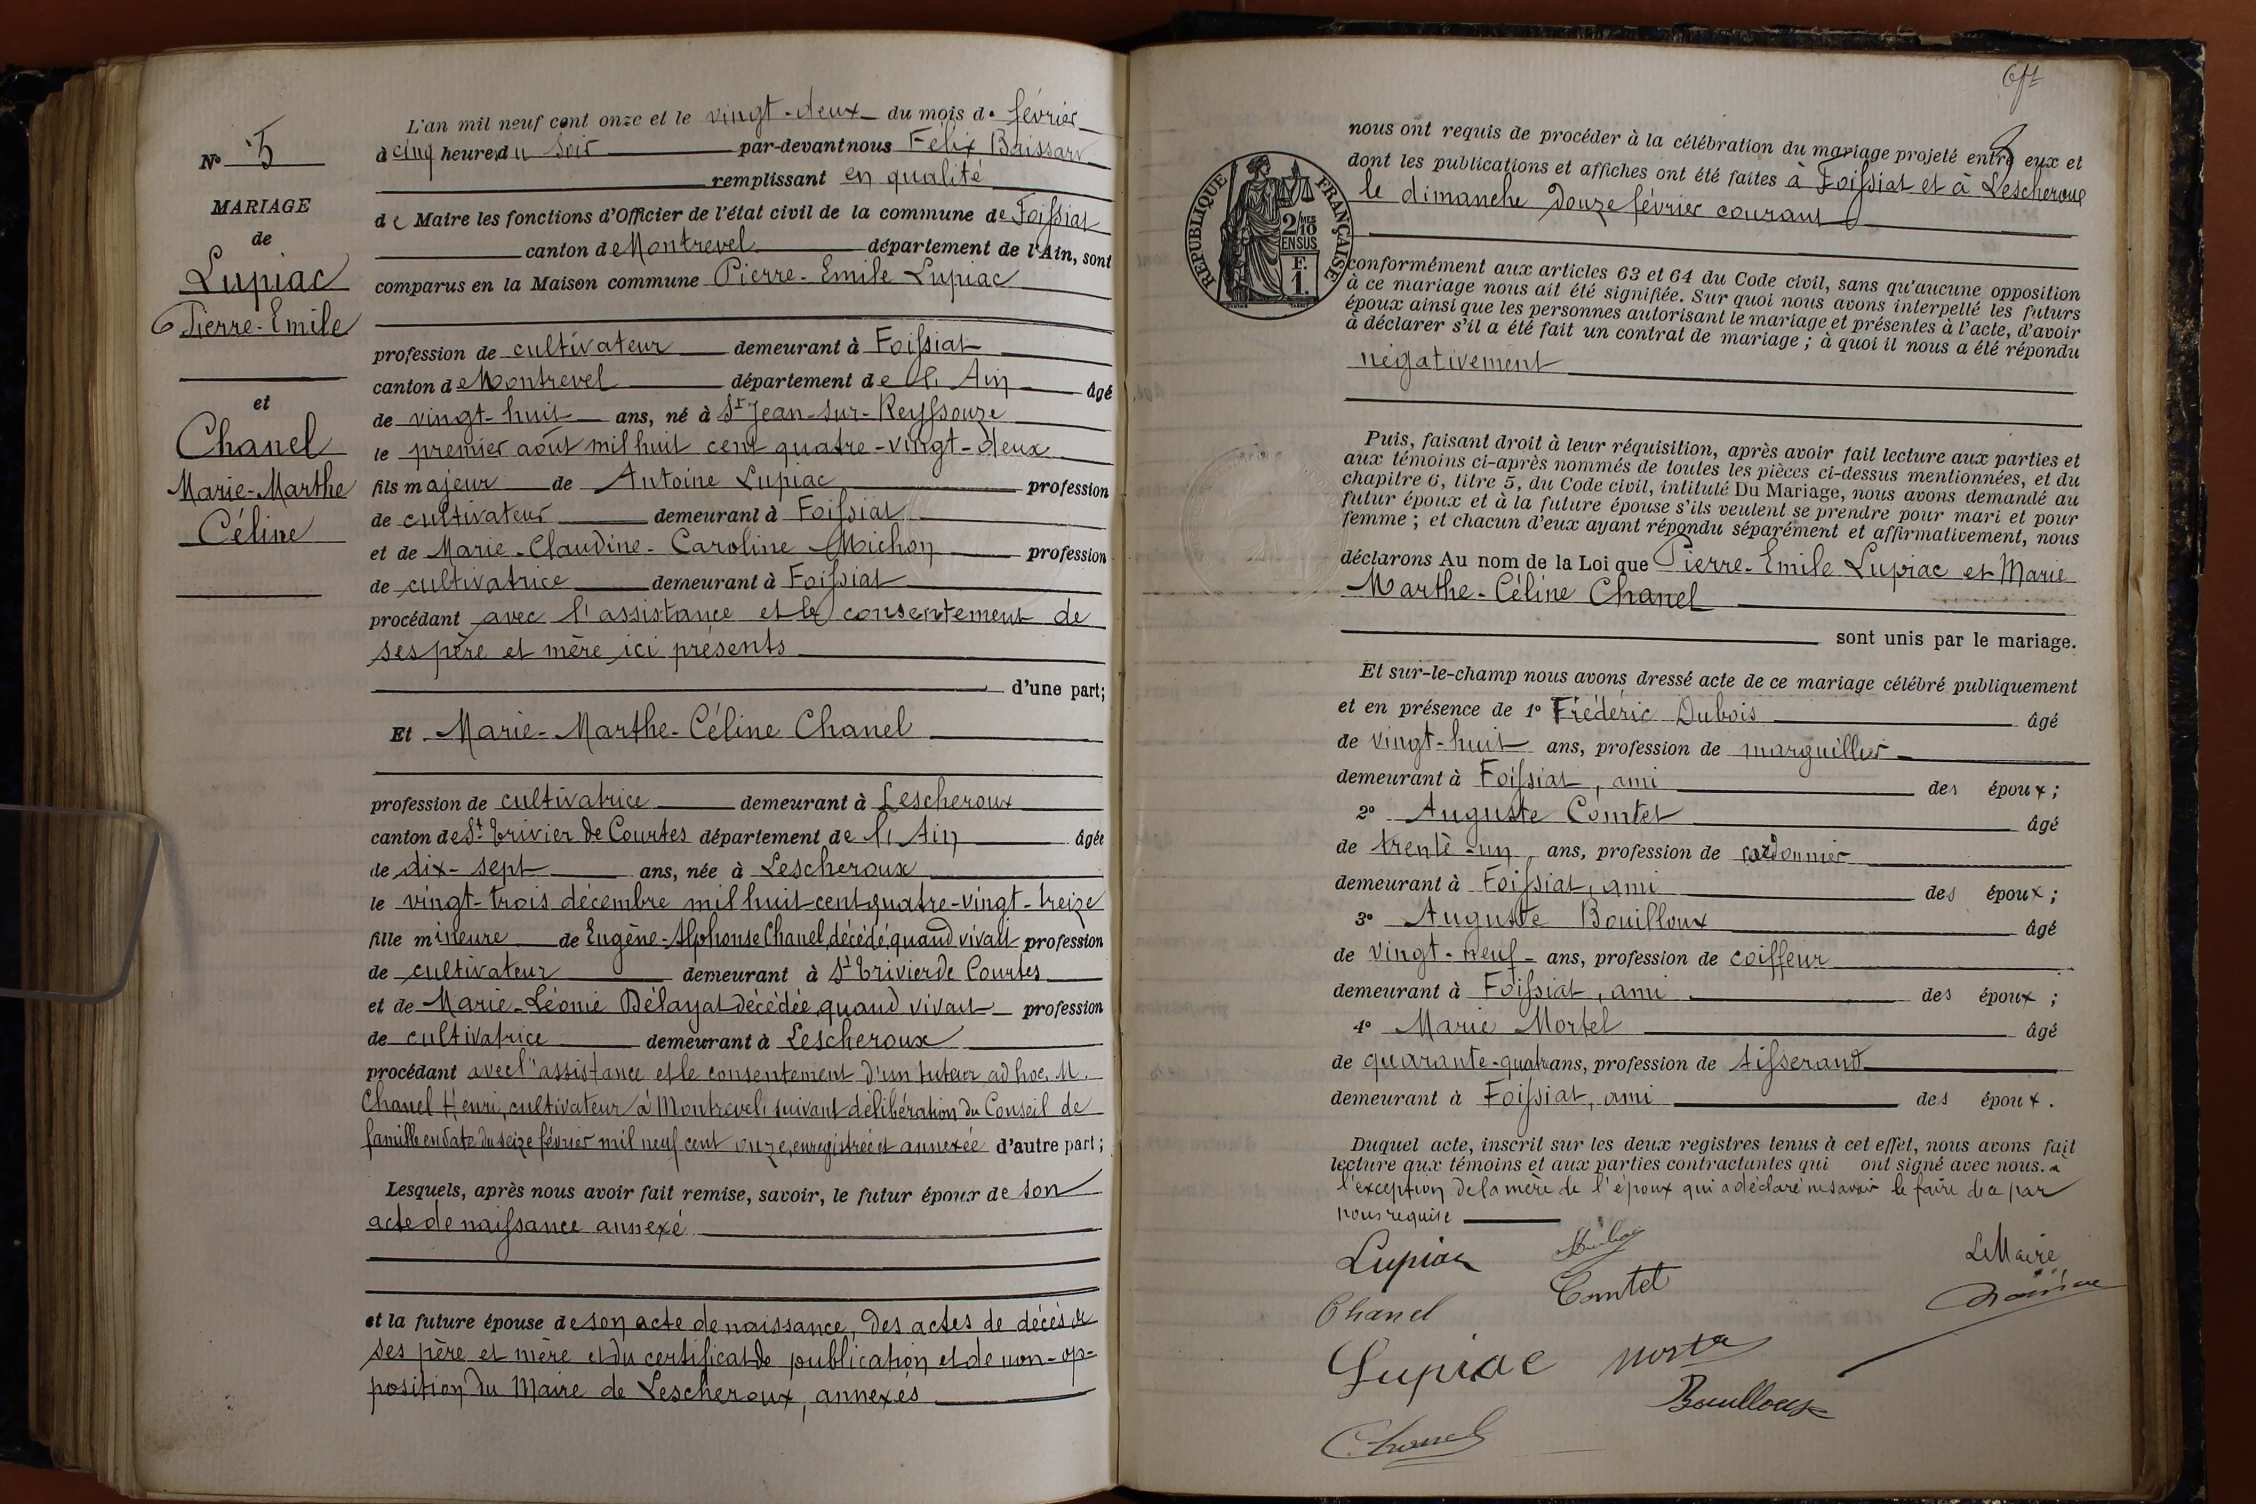 N° 5
MARIAGE
de
Lupiac
Pierre-Emile
et
Chanel
Marie-Marthe
Céline
L'an mil neuf cent onze et le vingt-deux du mois de février
à cinq heure du soir par-devant nous Félix
remplissant en qualité
de Maire les fonctions d'Officier de l'état civil de la commune de Foissiat
canton de Montrevel département de l'Ain, sont
comparus en la Maison commune Pierre-Emile Lupiac
profession de cultivateur demeurant à Foissiat
canton de Montrevel département de l'Ain âgé
de vingt-huit ans, né à St Jean-sur-Reyssouze
le premier août mil huit cent quatre-vingt-deux
fils majeur de Antoine Lupiac profession
de cultivateur demeurant à Foissiat
et de Marie-Claudine-Caroline Michon profession
de cultivatrice demeurant à Foissiat
procédant avec l'assistance et le consentement de
ses père et mère ici présents
d'une part;
Et Marie-Marthe-Céline Chanel
profession de cultivatrice demeurant à Lescheroux
canton de St Trivier de Courtes département de l'Ain âgée
de dix-sept ans, née à Lescheroux
le vingt-trois décembre mil huit cent quatre-vingt-treize
fille mineure de Eugène-Alphonse Chanel, décédé, quand vivait profession
de cultivateur demeurant à St Trivier de Courtes
et de Marie-Léonie Délayat décédée, quand vivait profession
de cultivatrice demeurant à Lescheroux
procédant avec l'assistance et le consentement d'un tuteur ad hoc, M.
Chanel Henri, cultivateur à Montrevel, suivant délibération du Conseil de
famille en date du seize février mil neuf cent onze, enregistrée et annexée d'autre part;
Lesquels, après nous avoir fait remise, savoir, le futur époux de son
acte de naissance annexé
et la future épouse de son acte de naissance, des actes de décès de
ses père et mère et du certificat de publication et de non-op-
position du Maire de Lescheroux, annexés
RÉPUBLIQUE FRANÇAISE
2/10 MES
EN SUS
F.
1.
nous ont requis de procéder à la célébration du mariage projeté entre eux et
dont les publications et affiches ont été faites à Foissiat et à Lescheroux
le dimanche douze février courant
conformément aux articles 63 et 64 du Code civil, sans qu'aucune opposition
à ce mariage nous ait été signifiée. Sur quoi nous avons interpellé les futurs
époux ainsi que les personnes autorisant le mariage et présentes à l'acte, d'avoir
à déclarer s'il a été fait un contrat de mariage; à quoi il nous a été répondu
négativement
Puis, faisant droit à leur réquisition, après avoir fait lecture aux parties et
aux témoins ci-après nommés de toutes les pièces ci-dessus mentionnées, et du
chapitre 6, titre 5, du Code civil, intitulé Du Mariage, nous avons demandé au
futur époux et à la future épouse s'ils veulent se prendre pour mari et pour
femme; et chacun d'eux ayant répondu séparément et affirmativement, nous
déclarons Au nom de la Loi que Pierre-Emile Lupiac et Marie
Marthe-Céline Chanel
sont unis par le mariage.
Et sur-le-champ nous avons dressé acte de ce mariage célébré publiquement
et en présence de 1° Frédéric Dubois âgé
de vingt-huit ans, profession de marguillier
demeurant à Foissiat, ami des époux;
2° Auguste Comtet âgé
de trente-un ans, profession de cordonnier
demeurant à Foissiat, ami des époux;
3° Auguste Bouilloux âgé
de vingt-neuf ans, profession de coiffeur
demeurant à Foissiat, ami des époux;
4° Marie Mortel âgé
de quarante-quatre ans, profession de tisserand
demeurant à Foissiat, ami des époux.
Duquel acte, inscrit sur les deux registres tenus à cet effet, nous avons fait
lecture aux témoins et aux parties contractantes qui ont signé avec nous. à
l'exception de la mère de l'époux qui a déclaré ne savoir le faire de ce par
nous requise
Lupiac
Comtet
Le Maire
Chanel
Lupiac
Bouilloux
Chanel